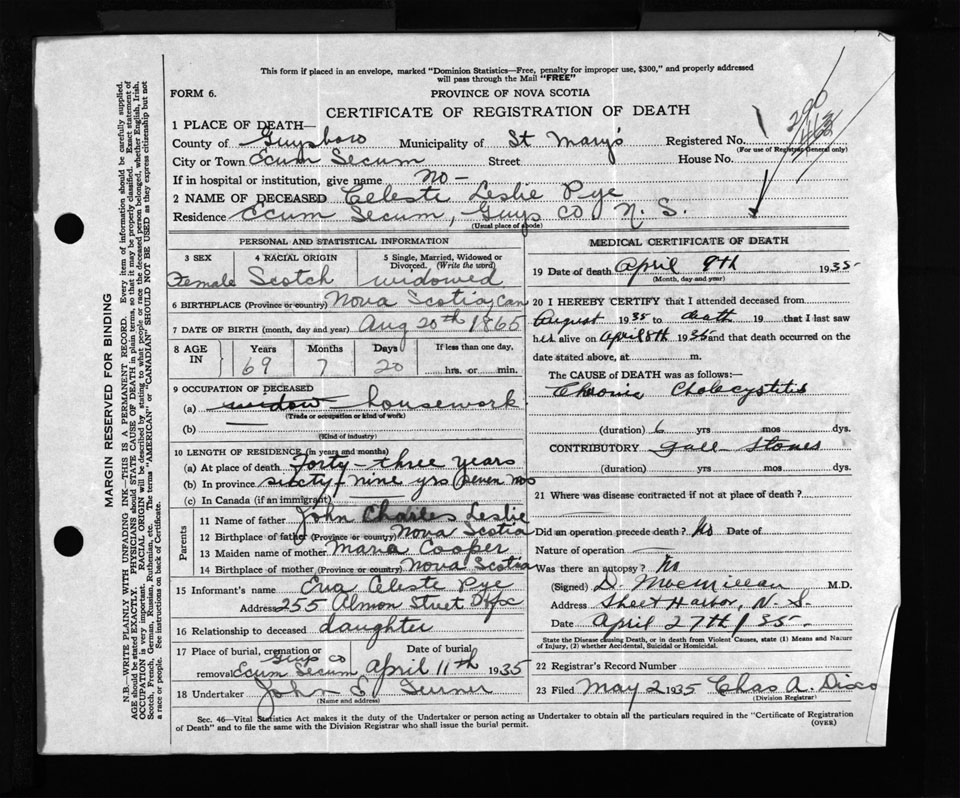 This form if placed in an envelope, marked "Dominion Statistics—Free, penalty for improper use, $300," and properly addressed
will pass through the Mail "FREE"
FORM 6. PROVINCE OF NOVA SCOTIA
CERTIFICATE OF REGISTRATION OF DEATH
290
463
1 PLACE OF DEATH—
County of Guysboro Municipality of St Mary's Registered No.
(For use of Registrar General only)
City or Town Ecum Secum Street House No.
If in hospital or institution, give name No -
2 NAME OF DECEASED Celeste Leslie Pye
Residence Ecum Secum, Guys Co N. S.
(Usual place of abode)
PERSONAL AND STATISTICAL INFORMATION
3 SEX 4 RACIAL ORIGIN 5 Single, Married, Widowed or
Divorced. (Write the word)
Female Scotch widowed
6 BIRTHPLACE (Province or country) Nova Scotia, Can
7 DATE OF BIRTH (month, day and year) Aug 20th 1865
8 AGE IN Years Months Days If less than one day,
69 7 20 hrs. or min.
9 OCCUPATION OF DECEASED
(a) widow housework
(Trade or occupation or kind of work)
(b)
(Kind of industry)
10 LENGTH OF RESIDENCE (in years and months)
(a) At place of death Forty-three years
(b) In province sixty-nine yrs seven mos
(c) In Canada (if an immigrant)
Parents
11 Name of father John Charles Leslie
12 Birthplace of father (Province or country) Nova Scotia
13 Maiden name of mother Maria Cooper
14 Birthplace of mother (Province or country) Nova Scotia
15 Informant's name Eva Celeste Pye
Address 255 Almon Street Hfx
16 Relationship to deceased daughter
17 Place of burial, cremation or Date of burial
Guys Co
removal Ecum Secum April 11th 1935
18 Undertaker John E Turner
(Name and address)
MEDICAL CERTIFICATE OF DEATH
19 Date of death April 9th 1935
(Month, day and year)
20 I HEREBY CERTIFY that I attended deceased from
August 1935 to death 19 that I last saw
her alive on April 8th 1935 and that death occurred on the
date stated above, at m.
The CAUSE of DEATH was as follows:—
Chronic Cholecystitis
(duration) 6 yrs mos dys.
CONTRIBUTORY Gall Stones
(duration) yrs mos dys.
21 Where was disease contracted if not at place of death?
Did an operation precede death? No Date of
Nature of operation
Was there an autopsy? No
(Signed) D. Macmillan M.D.
Address Sheet Harbor, N. S.
Date April 27th / 35
State the Disease causing Death, or in death from Violent Causes, state (1) Means and Nature
of Injury, (2) whether Accidental, Suicidal or Homicidal.
22 Registrar's Record Number
23 Filed May 2 1935 Chas A.
(Division Registrar)
Sec. 46—Vital Statistics Act makes it the duty of the Undertaker or person acting as Undertaker to obtain all the particulars required in the "Certificate of Registration
of Death" and to file the same with the Division Registrar who shall issue the burial permit. (OVER)
MARGIN RESERVED FOR BINDING
N.B.—WRITE PLAINLY WITH UNFADING INK—THIS IS A PERMANENT RECORD. Every item of information should be carefully supplied.
AGE should be stated EXACTLY. PHYSICIANS should STATE CAUSE OF DEATH in plain terms, so that it may be properly classified. Exact statement of
OCCUPATION is very important. RACIAL ORIGIN will be described by stating to what people or race the deceased person belonged, whether English, Irish,
Scotch, French, German, Russian, Ruthenian, etc. The terms "AMERICAN" or "CANADIAN" SHOULD NOT BE USED as they express citizenship but not
a race or people. See instructions on back of Certificate.